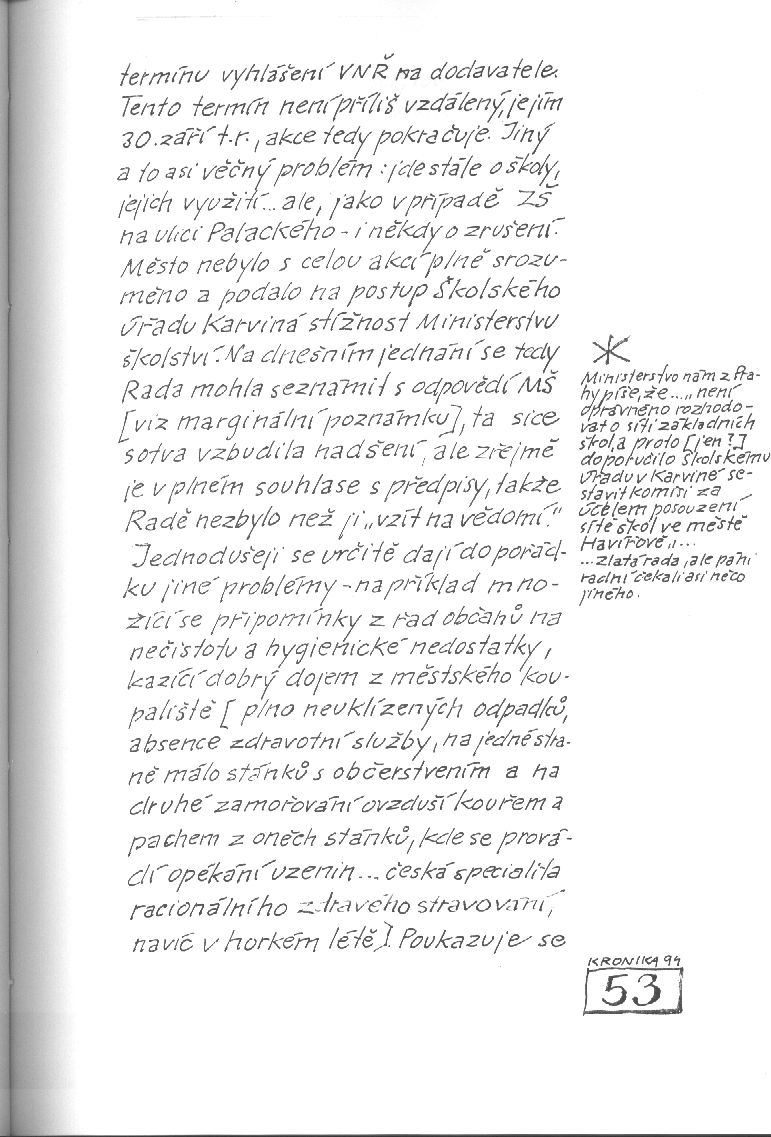 termínu vyhlášení VNŘ na dodavatele.
Tento termín není příliš vzdálený, je jím
30. září t.r., akce tedy pokračuje. Jiný
a to asi věčný problém: jde stále o školy,
jejich využití... ale, jako v případě ZŠ
na ulici Palackého - i někdy o zrušení.
Město nebylo s celou akcí plně srozu-
měno a podalo na postup Školského
úřadu Karviná stížnost Ministerstvu
školství. Na dnešním jednání se tedy
Rada mohla seznámit s odpovědí MŠ
[viz marginální poznámku], ta sice
sotva vzbudila nadšení, ale zřejmě
je v plném souhlase s předpisy, takže
Radě nezbylo než ji „vzít na vědomí."
Jednodušeji se určitě dají do pořád-
ku jiné problémy - například mno-
žící se připomínky z řad občanů na
nečistotu a hygienické nedostatky,
kazící dobrý dojem z městského kou-
paliště [plno neuklízených odpadků,
absence zdravotní služby, na jedné stra-
ně málo stánků s občerstvením a na
druhé zamořování ovzduší kouřem a
pachem z oněch stánků, kde se prová-
dí opékání uzenin... česká specialita
racionálního zdravého stravování,
navíc v horkém létě]. Poukazuje se
Ministerstvo nám z Pra-
hy píše, že ... „není
oprávněno rozhodo-
vat o síti základních
škol, a proto [jen?]
doporučilo Školskému
úřadu v Karviné se-
stavit komisi za
účelem posouzení
sítě škol ve městě
Havířově„...
...zlatá rada, ale páni
radní čekali asi něco
jiného.
KRONIKA 94
53